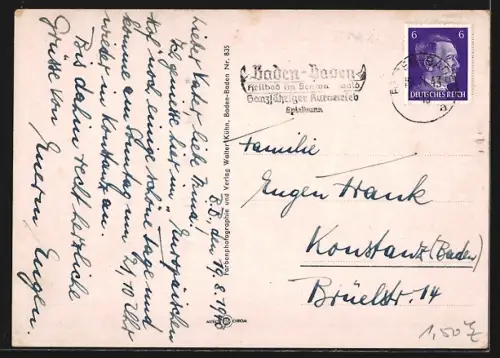 B.B., den 19.8.1943
Lieber Vater, liebe Mama!
genieße hier im Europäischen
Hof noch einige schöne Tage und
komme am Sonntag um 21,10 Uhr
wieder in Konstanz an.
Bis dahin recht herzliche
Grüsse von
Eurem Eugen.
Farbenphotographie und Verlag Walter Kühn, Baden-Baden Nr. 835
Baden-Baden
Heilbad im Schwarzwald
Ganzjähriger Kurbetrieb
Spielbank
6 6
DEUTSCHES REICH
a
Familie
Eugen Frank
Konstanz (Baden)
Brüelstr. 14
1,50